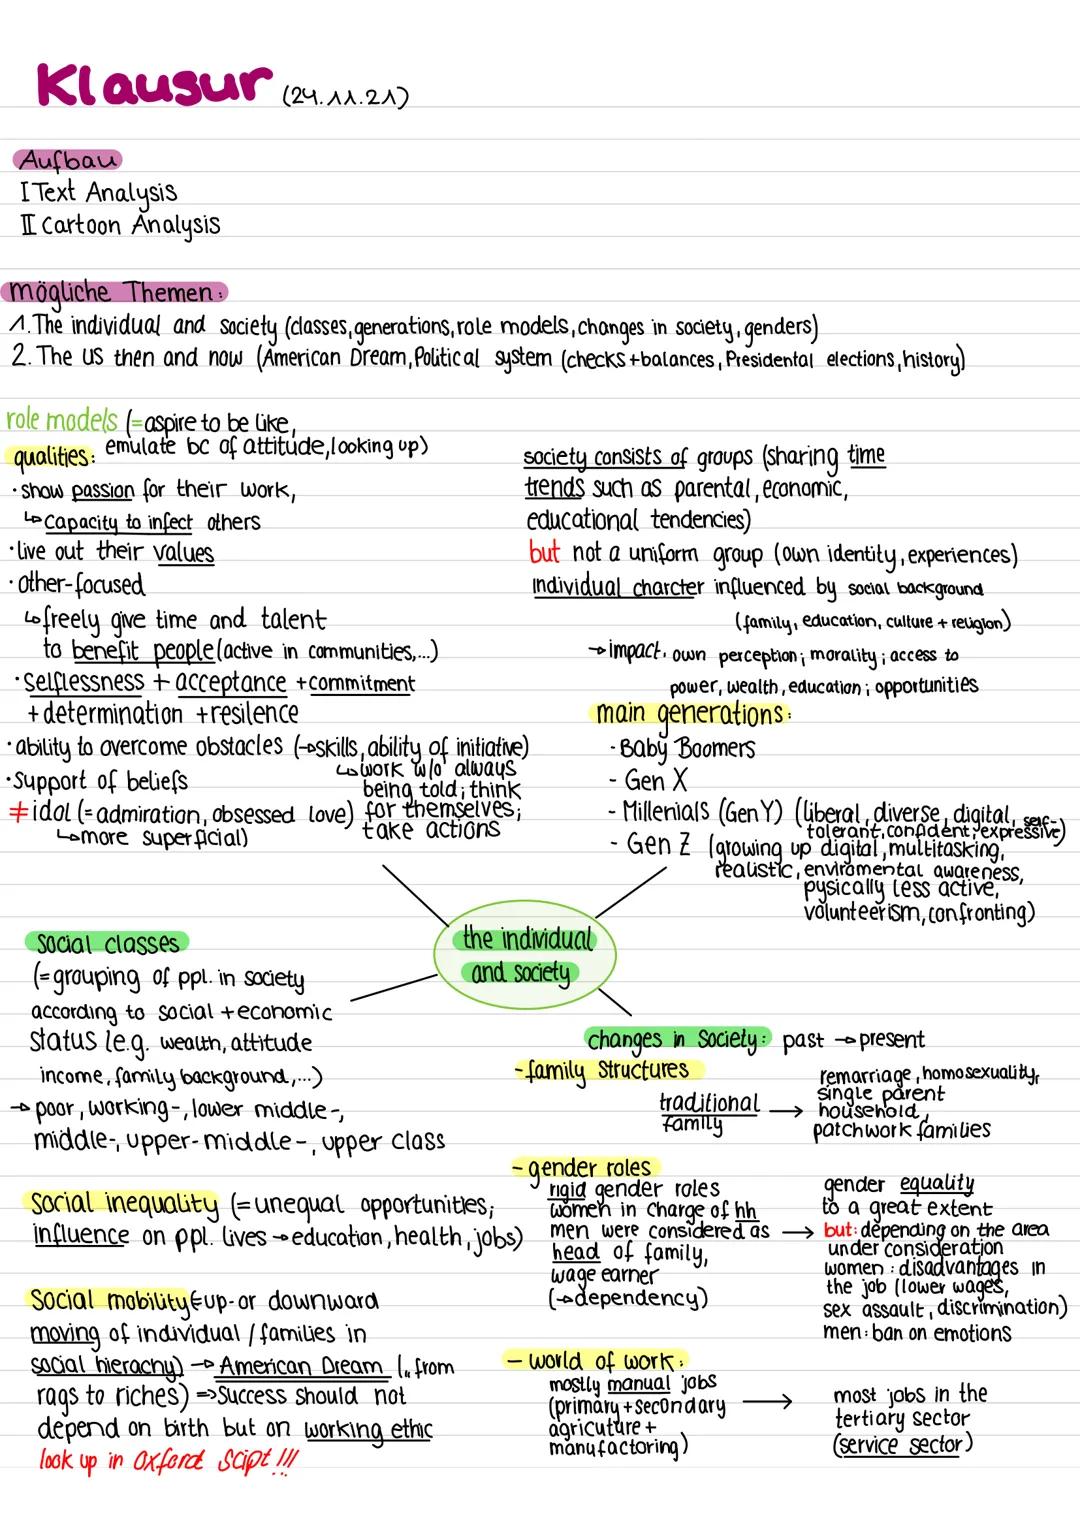 Klausur (24.11.21)
Aufbau
I Text Analysis
II Cartoon Analysis
mögliche Themen:
1. The individual and society (classes, generations, role models, changes in society, genders)
2. The US then and now (American Dream, Political system (checks + balances, Presidental elections, history)
role models (= aspire to be like,
emulate bc of attitude, looking up)
qualities:
· show passion for their work,
↳ Capacity to infect others
· live out their values
· other-focused
↳ freely give time and talent
to benefit people (active in communities,...)
· selflessness + acceptance + commitment
+ determination + resilence
· ability to overcome obstacles (→ skills, ability of initiative)
↳ work w/o always
being told; think
for themselves;
take actions
· support of beliefs
≠ idol (= admiration, obsessed love)
↳ more superficial)
society consists of groups (sharing time
trends such as parental, economic,
educational tendencies)
but not a uniform group (own identity, experiences)
individual charcter influenced by social background
(family, education, culture + religion)
→ impact: own perception; morality; access to
power, wealth, education; opportunities
main generations:
- Baby Boomers
- Gen X
- Millenials (Gen Y) (liberal, diverse, digital, self-
tolerant, confident, expressive)
- Gen Z (growing up digital, multitasking,
realistic, enviromental awareness,
pysically less active,
volunteerism, confronting)
the individual
and society
social classes
(= grouping of ppl. in society
according to social + economic
status (e.g. wealth, attitude
income, family background,...)
→ poor, working-, lower middle-,
middle-, upper-middle-, upper class
Social inequality (= unequal opportunities;
influence on ppl. lives → education, health, jobs)
Social mobility (= up- or downward
moving of individual / families in
social hierachy) → American Dream („from
rags to riches) => Success should not
depend on birth but on working ethic
look up in Oxford Scipt !!!
changes in Society: past → present
- family Structures
traditional
family
→
remarriage, homosexuality,
single parent
household,
patchwork families
- gender roles
rigid gender roles
women in charge of hh
men were considered as
head of family,
wage earner
(→ dependency)
→
gender equality
to a great extent
but: depending on the area
under consideration
women: disadvantages in
the job (lower wages,
sex assault, discrimination)
men: ban on emotions
- world of work:
mostly manual jobs
(primary + secondary
agricuture +
manufactoring)
→
most jobs in the
tertiary sector
(service sector)